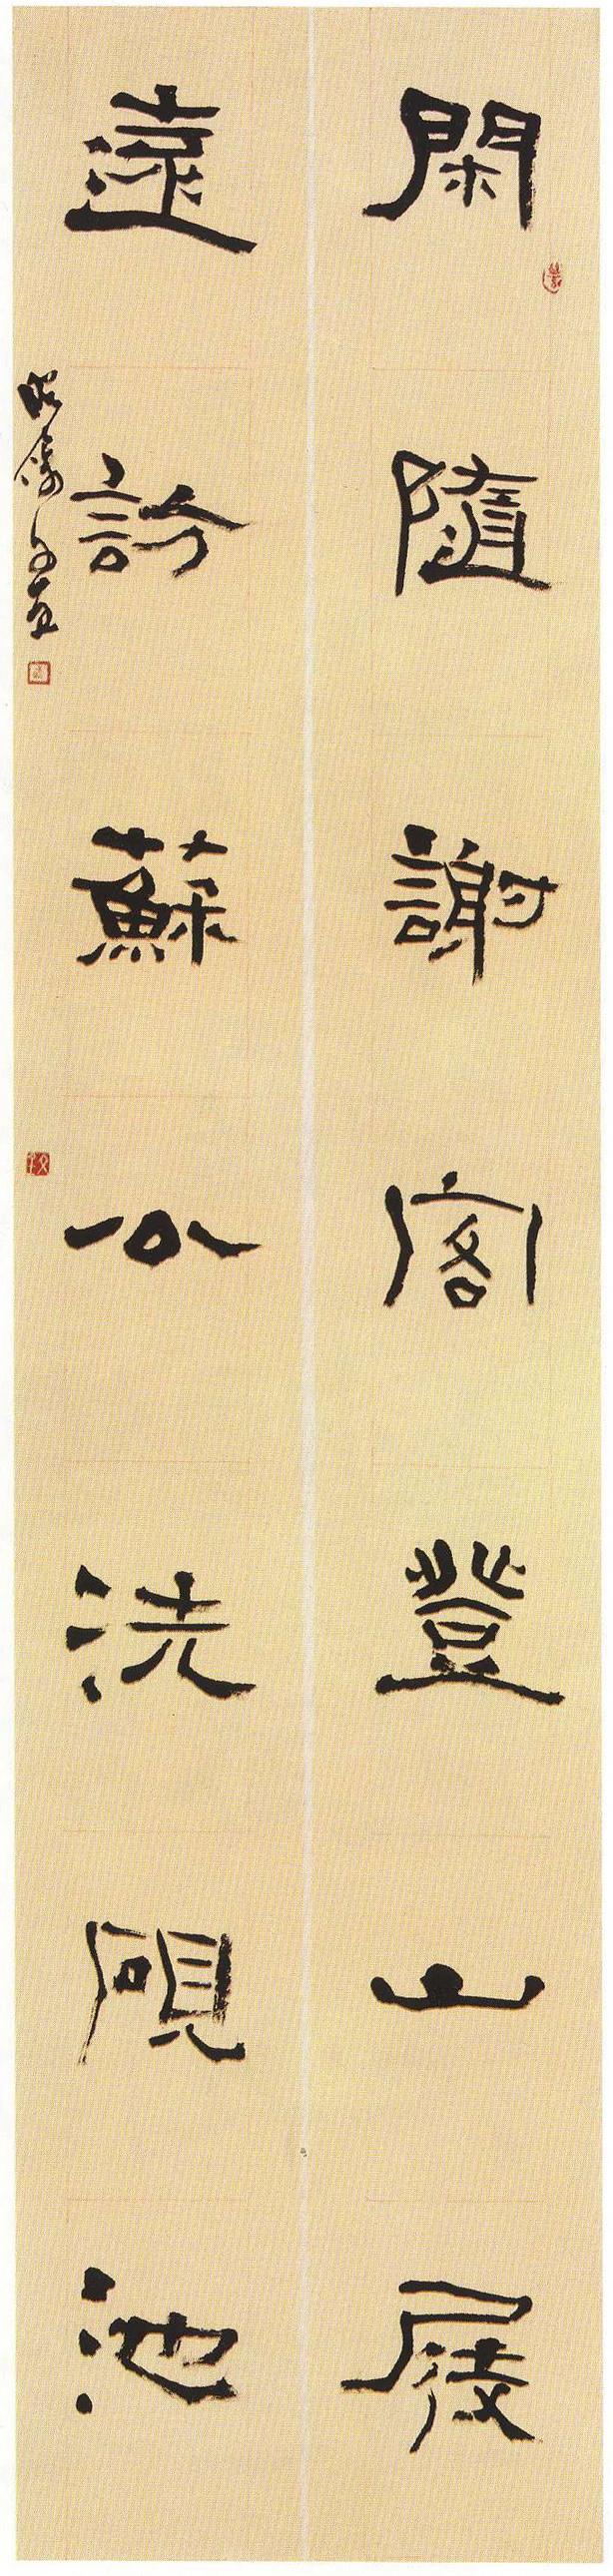 閑隨謝客登山屐
遠訪蘇公洗硯池